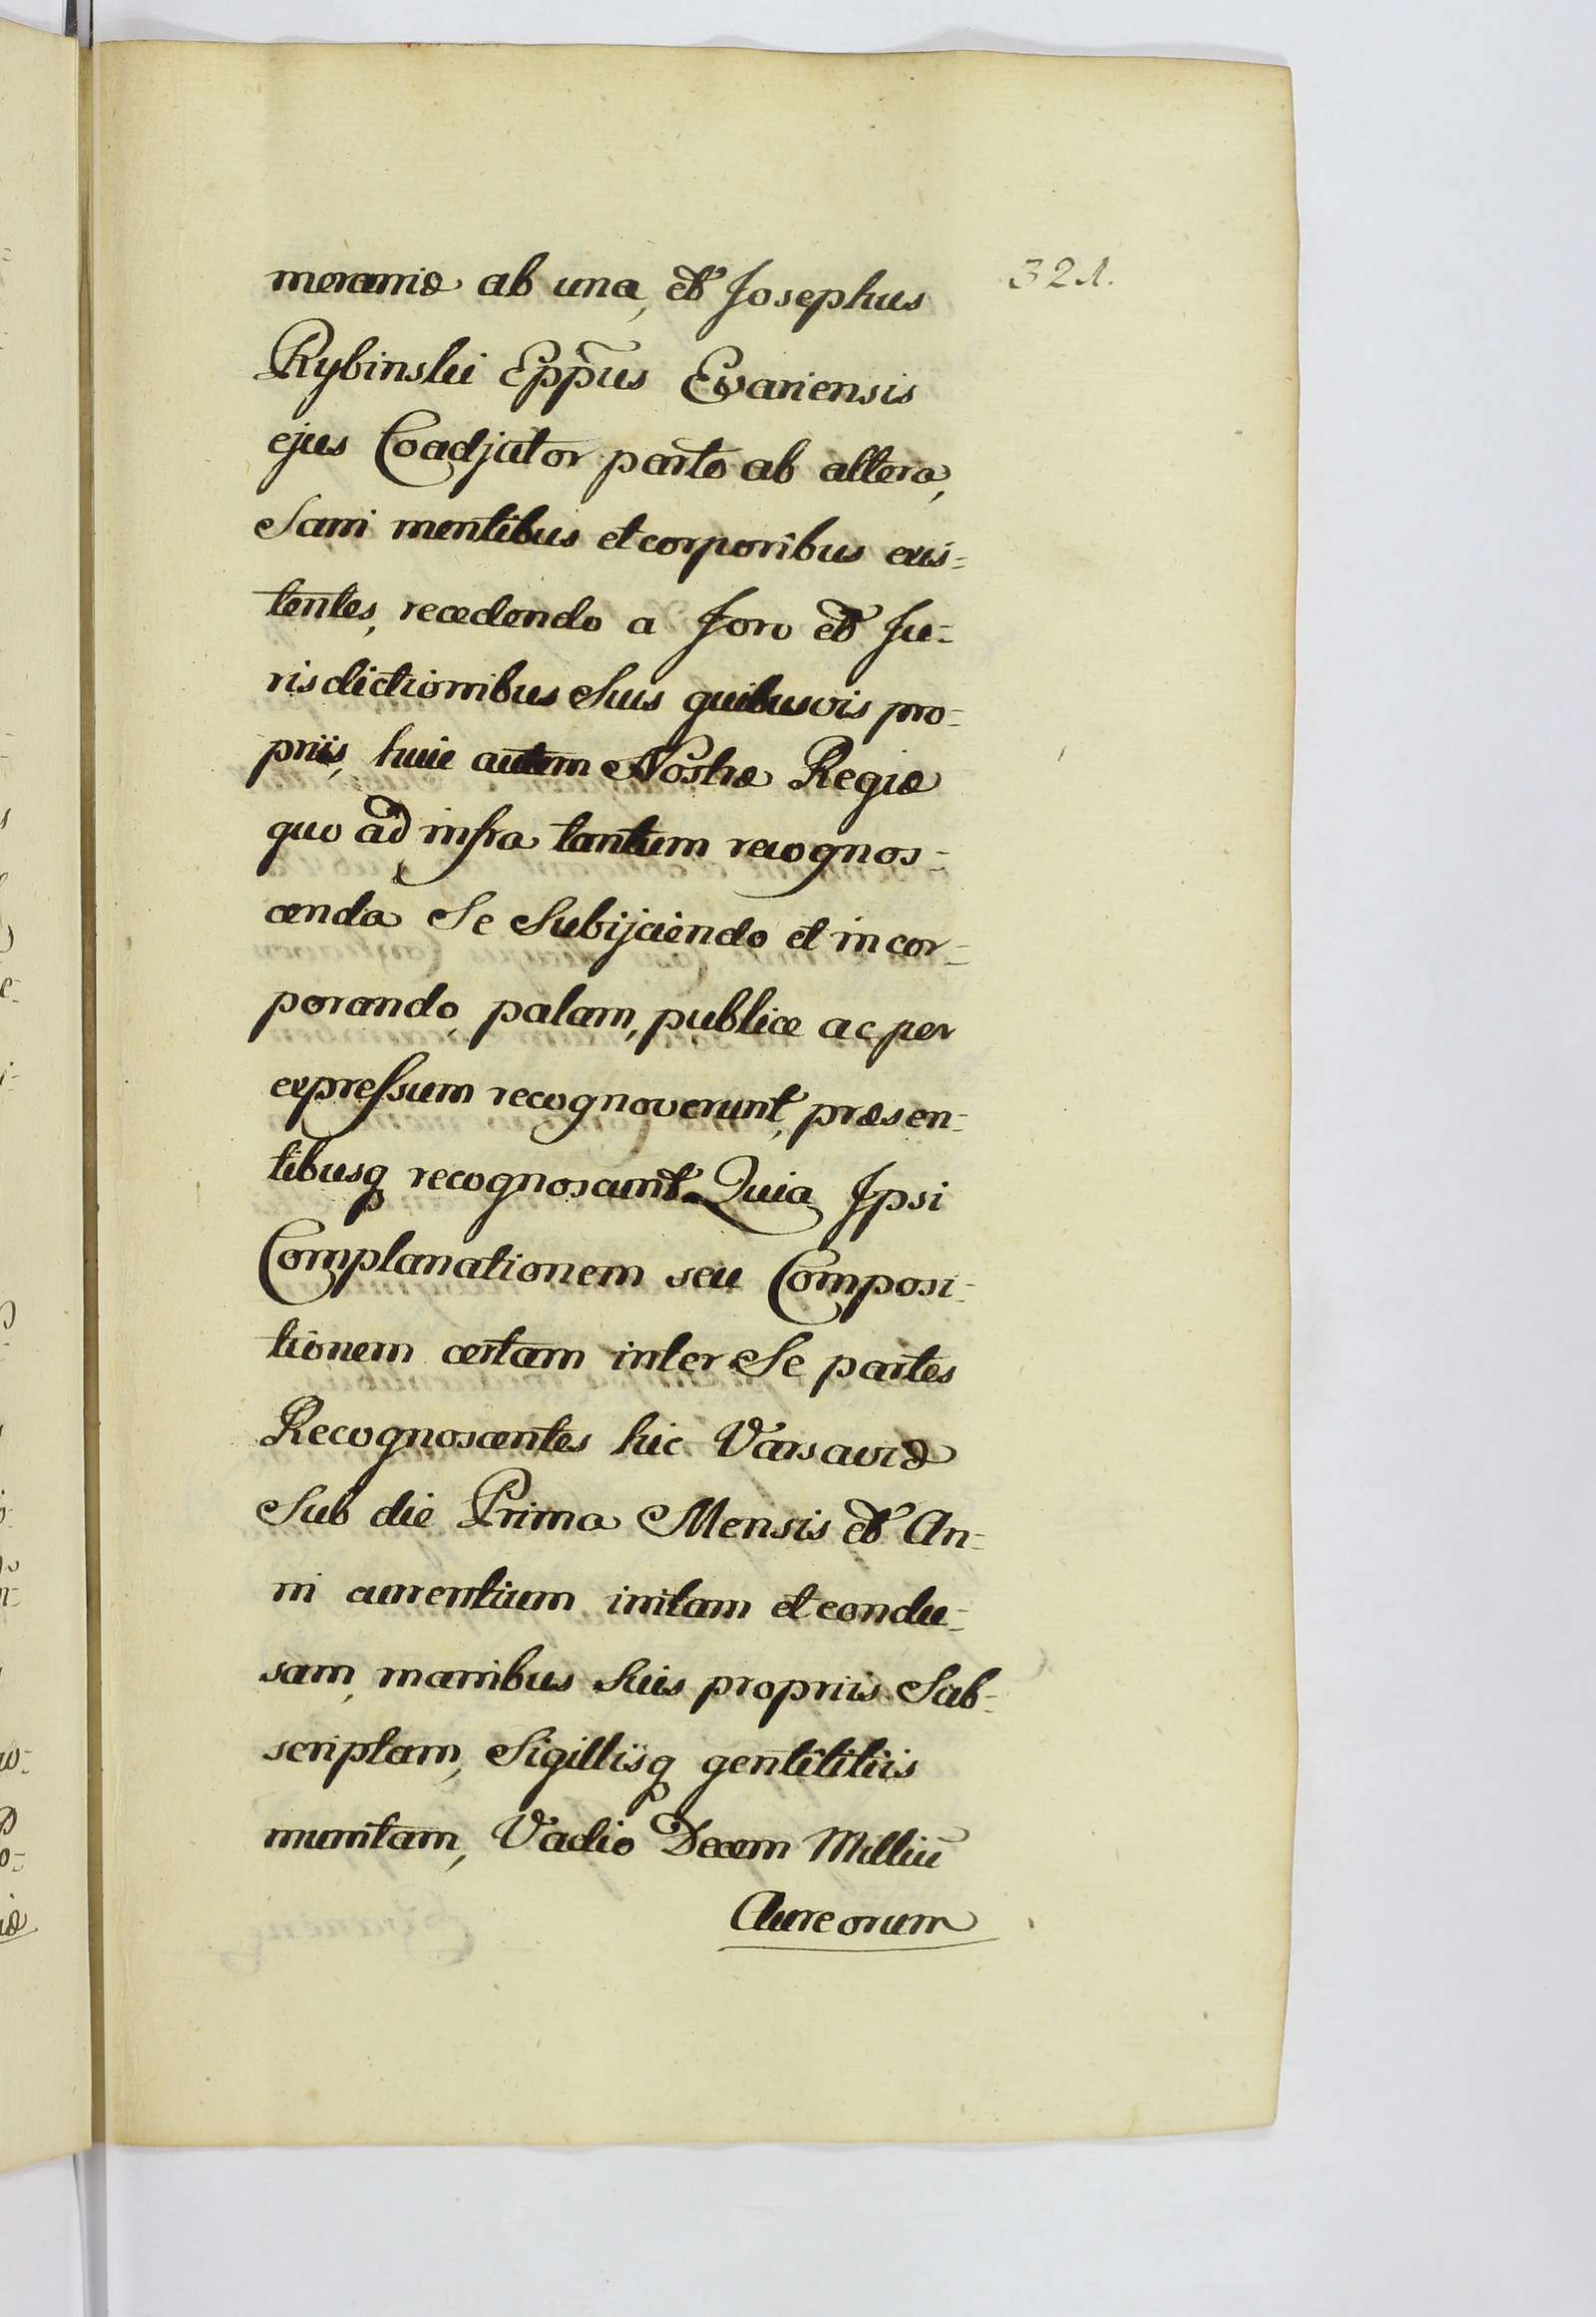 meraniæ ab una, et Josephus
321.
Rybinski Eppus Evariensis
ejus Coadjutor parte ab altera,
Sani mentibus et corporibus exis=
tentes, recedendo a Foro et Ju=
risdictionibus Suis quibusvis pro=
priis, huic autem Nostræ Regiæ
quo ad infra tantum recognos=
cenda Se Subijciendo et incor=
porando, palam, publice ac per
expressum recognoverunt, præsen=
tibusq recognoscunt. Quia Ipsi
Complanationem seu Composi=
tionem certam inter Se partes
Recognoscentes hic Varsaviæ
Sub die Prima Mensis et An=
ni currentium initam et conclu=
sam, manibus Suis propriis Sub=
scriptam, Sigillisq gentilitiis
munitam, Vadio Decem Milliū
Aureorum